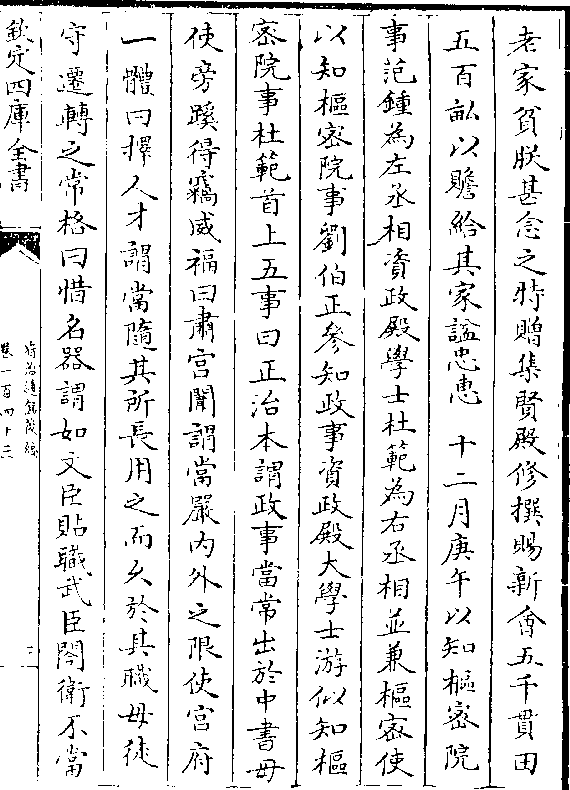 老家貧朕甚念之特贈集賢殿修撰賜新會五千貫田
五百畝以贍給其家諡忠惠　十二月庚午以知樞密院
事范鍾為左丞相資政殿學士杜範為右丞相並兼樞密使
以知樞密院事劉伯正參知政事資政殿大學士游似知樞
密院事杜範首上五事曰正治本謂政事當常出於中書毋
使旁蹊得竊威福曰肅宮闈謂當嚴內外之限使宮府
一體曰擇人才謂當隨其所長用之而久於其職毋徒
守遷轉之常格曰惜名器謂如文臣貼職武臣閤衛不當
欽定四庫全書
資治通鑑後編
卷一百四十三
二